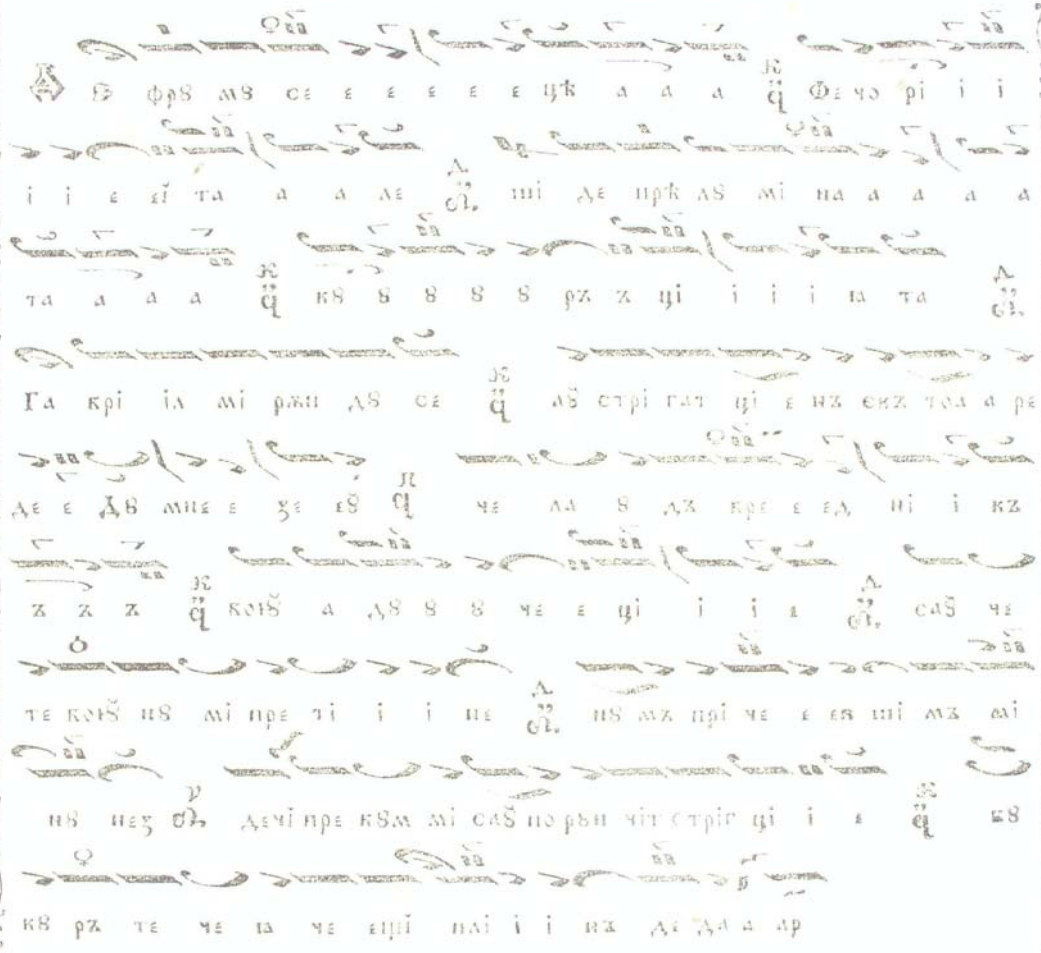 Д Є фрꙋ мꙋ се е е е е е цѣ а а а Фе чо рі і і
і і е еї та а а ле ші де прѣ лꙋ мі на а а а а
та а а а кꙋ ꙋ ꙋ ꙋ ꙋ ръ ъ ці і і і ꙗ та
Га врі іл мі рѫн дꙋ се аꙋ стрі гат ці е нъ евъ тоа а ре
де е Дꙋ мнее е зе еꙋ че ла ꙋ дъ вре е ед ні і къ
ъ ъ ъ а дꙋ ꙋ ꙋ че е ці і і е саꙋ че
те нꙋ мі пре ті і і не нꙋ мъ прі че е ев ші мъ мі
нꙋ нез дечі пре кꙋм мі саꙋ по рѫн чіт стріг ці і е кꙋ
кꙋ ръ те че ꙗ че плі і і нъ де да а ар